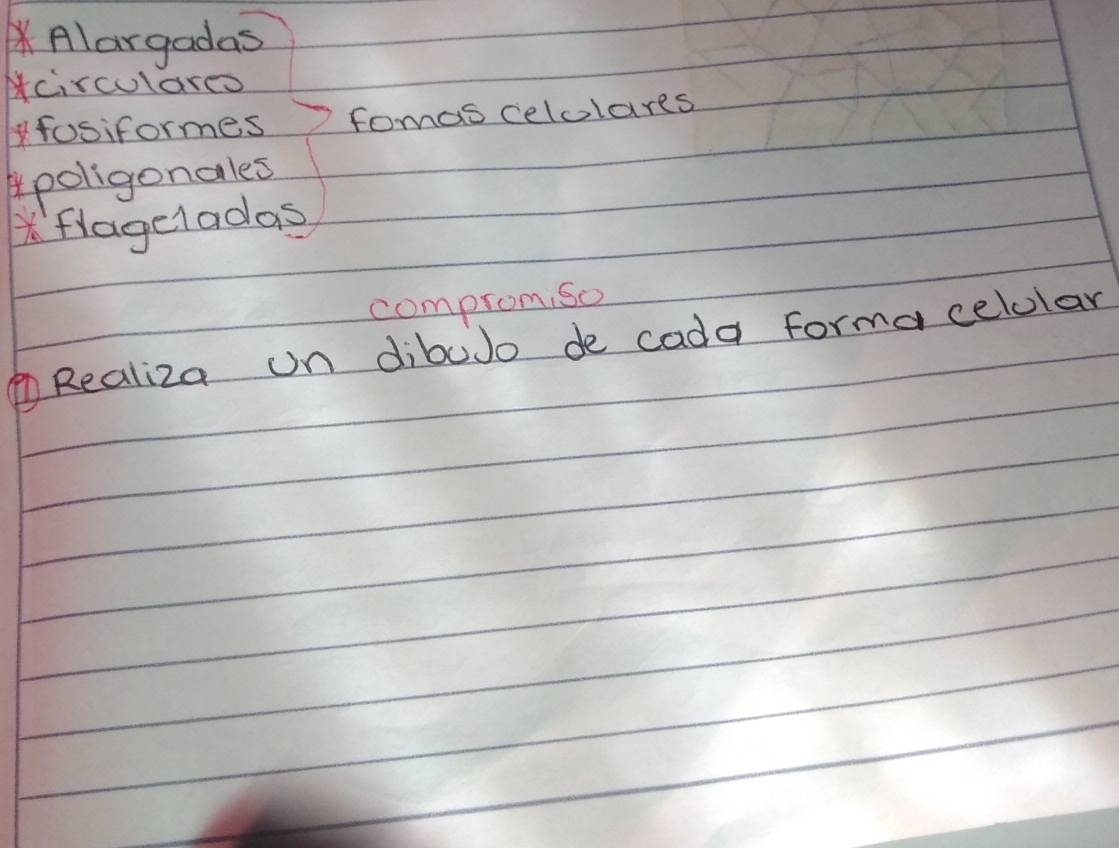 * Alargadas
* circulares
* fusiformes
fomas celulares
* poligonales
* flageladas
compromiso
① Realiza un dibuJo de cada forma celular